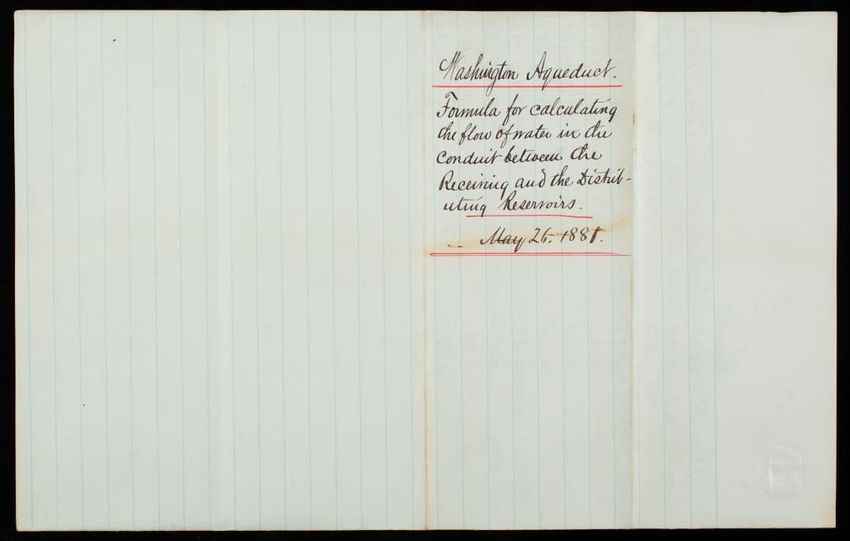 Washington Aqueduct.
Formula for calculating
the flow of water in the
conduit between the
Receiving and the Distrib-
uting Reservoirs.
May 26. 1881.